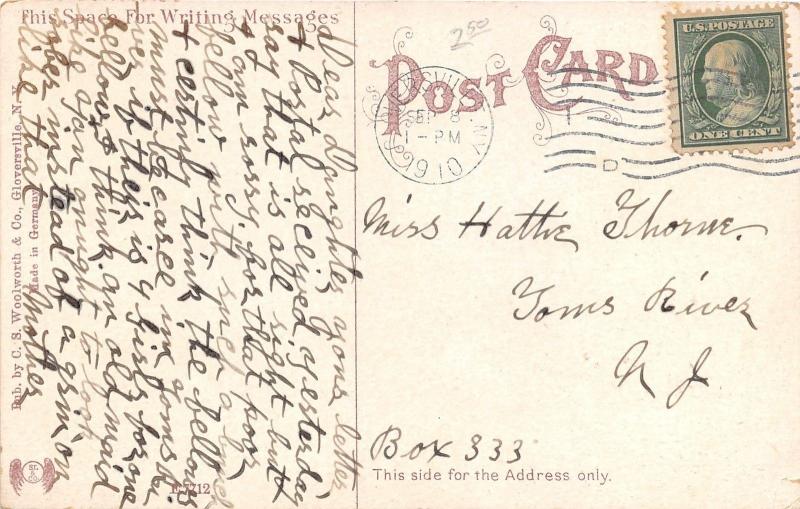 This Space For Writing Messages
Dear Daughter your letter
& Postal received yesterday
say that is all right but
I am sorry for that poor
bellow with such a
& certinly think the bellows
must be carce in Toms Ri
ver if theis is 4 girls for one
bellow & think an old maid
like you ought to look
ober instead of a
like that Mother
Pub. by C. S. Woolworth & Co., Gloversville, N. Y.
Made in Germany
ST. & CO.
E 7712
2 50
POST CARD
GLOVERSVILLE, N.Y.
SEP 8
1-PM
1910
D
U.S. POSTAGE
ONE CENT
Miss Hattie Thorne.
Toms River
N J.
Box 333
This side for the Address only.